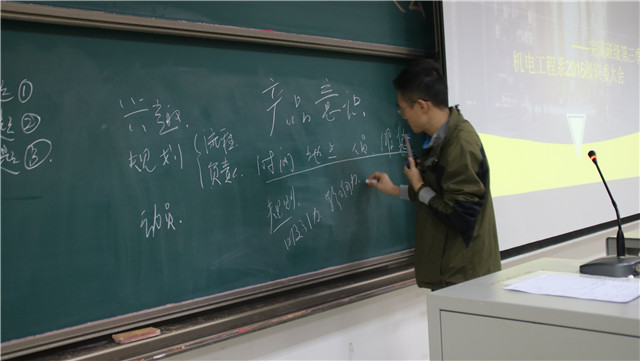 ①
②
③
兴趣
规划
流程
负责
动员
产品意识
时间 地点 人员
规划
吸引力 影响力
机电工程系2016级 大会